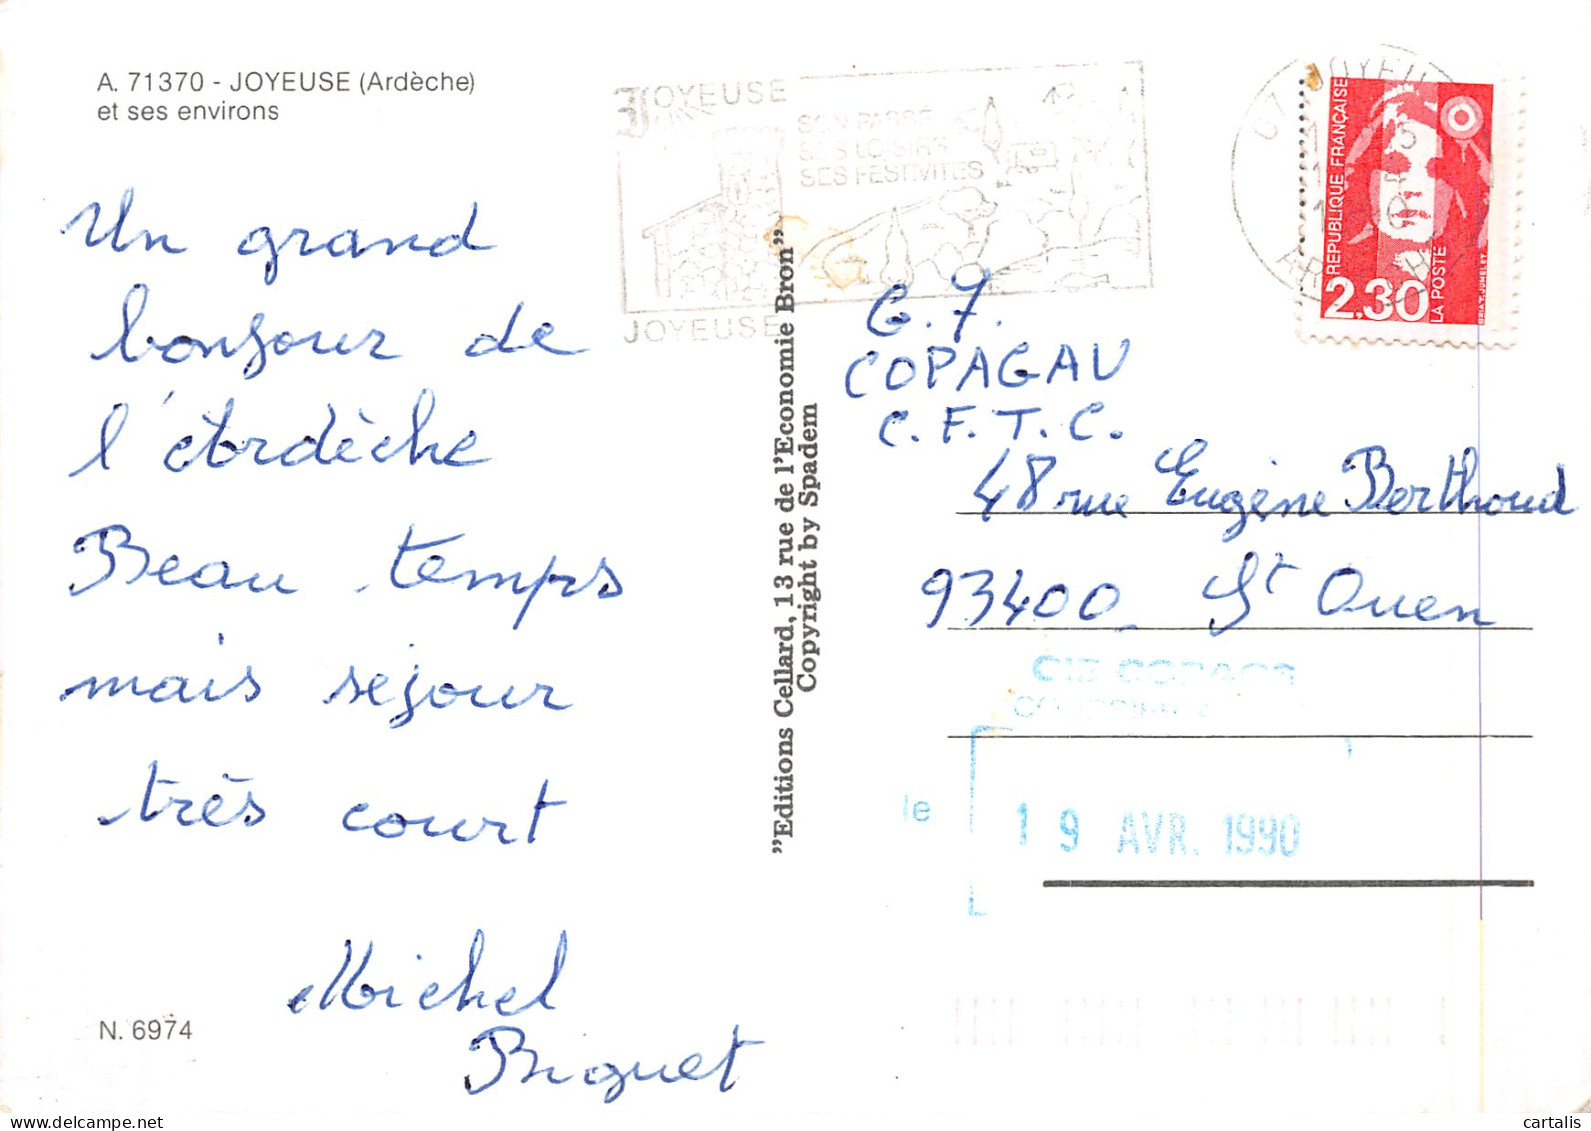 A. 71370 - JOYEUSE (Ardèche)
et ses environs
Un grand
bonjour de
l'Ardèche
Beau temps
mais sejour
très court
Michel
Briguet
N. 6974
JOYEUSE
SON PASSÉ
SES LOISIRS
SES FESTIVITÉS
JOYEUSE
"Editions Cellard, 13 rue de l'Economie Bron"
Copyright by Spadem
07 JOYEU
RÉPUBLIQUE FRANÇAISE
2.30
LA POSTE
COPAGAU
C.F.T.C.
48 rue Eugène Berthoud
93400 St Ouen
le
19 AVR. 1990
cartalis